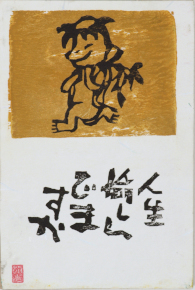 人生
愉しん
でま
すか